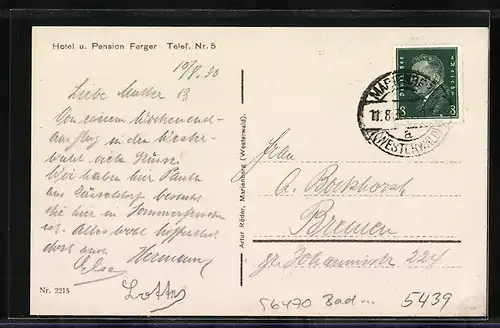 Hotel u. Pension Ferger Telef. Nr. 5
10/8. 30
Liebe Mutter B
Von einem Wochenend-
ausflug in den Wester-
wald viele Grüsse.
Wir haben hier Paula
aus Düsseldorf besucht
die hier in Sommerfrische
ist. Alles wohl hoffentlich
dort auch. Hermann
Else
Lotte
Nr. 2215
Artur Röder, Marienberg (Westerwald).
Deutsches Reich
8 8
11.8.
a
(WESTERWALD)
Frau
A. Bockhorst
Bremen
gr. Johannisstr 224
56470 Bad
5439